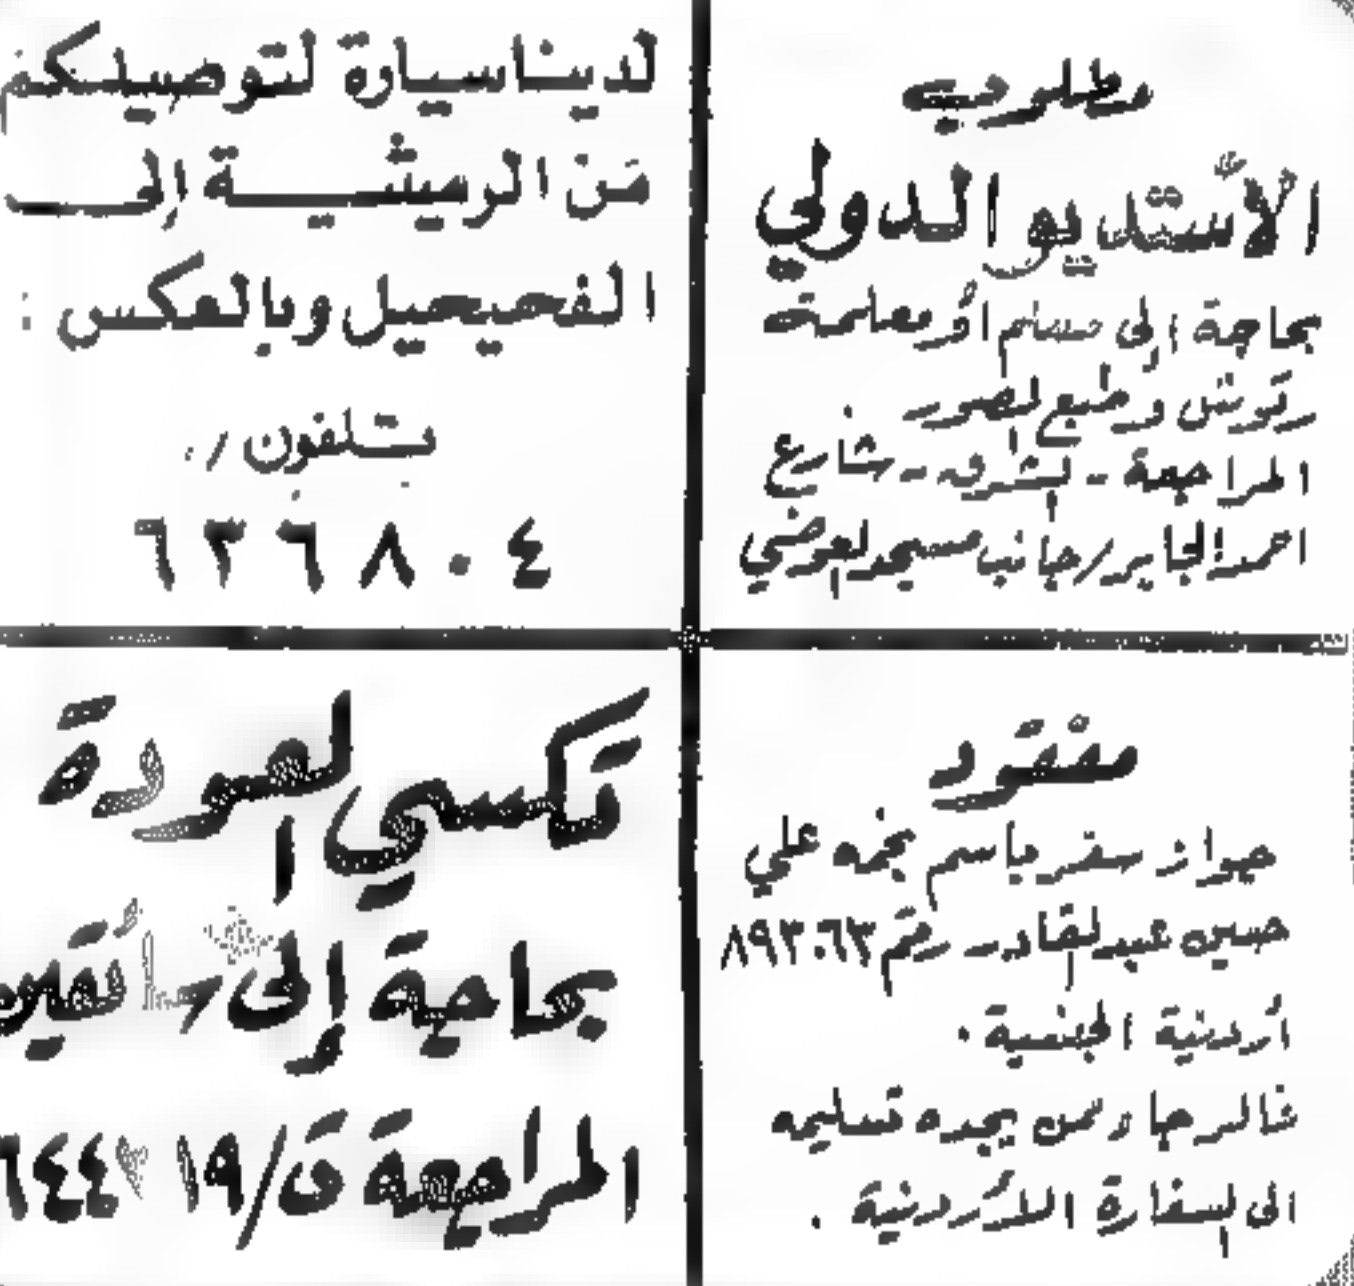 مطلوب
الأستديو الدولي
بحاجة إلى مستلم أو معلمة
رتوش و طبع الصور .
المراجعة - الشرق - شارع
احمد الجابر / جانب مسجد العوضي
لدينا سيارة لتوصيلكم
من الرميثية إلى
الفحيحيل وبالعكس :
بتلفون / .
٦٣٦٨٠٤
مفقود
جواز سفر باسم نجمه علي
حسين عبد القادر رقم ٨٩٣٠٦٣
أردنية الجنسية .
فالرجاء ممن يجده تسليمه
الى السفارة الأردنية .
تكسي العودة
بحاجة إلى سائقين
المراجعة ق/١٩